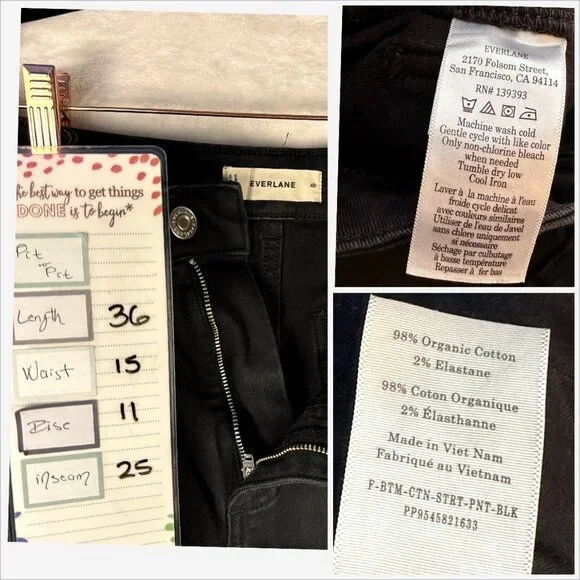 The best way to get things
DONE is to begin*
Pit
to
Pit
Length 36
Waist 15
Rise 11
inseam 25
EVERLANE
EVERLANE
2170 Folsom Street,
San Francisco, CA 94114
RN# 139393
Machine wash cold
Gentle cycle with like color
Only non-chlorine bleach
when needed
Tumble dry low
Cool Iron
Laver à la machine à l'eau
froide cycle delicat
avec couleurs similaires
Utiliser de l'eau de Javel
sans chlore uniquement
si nécessaire
Séchage par culbutage
à basse température
Repasser à fer bas
98% Organic Cotton
2% Elastane
98% Coton Organique
2% Élasthanne
Made in Viet Nam
Fabriqué au Vietnam
F-BTM-CTN-STRT-PNT-BLK
PP9545821633